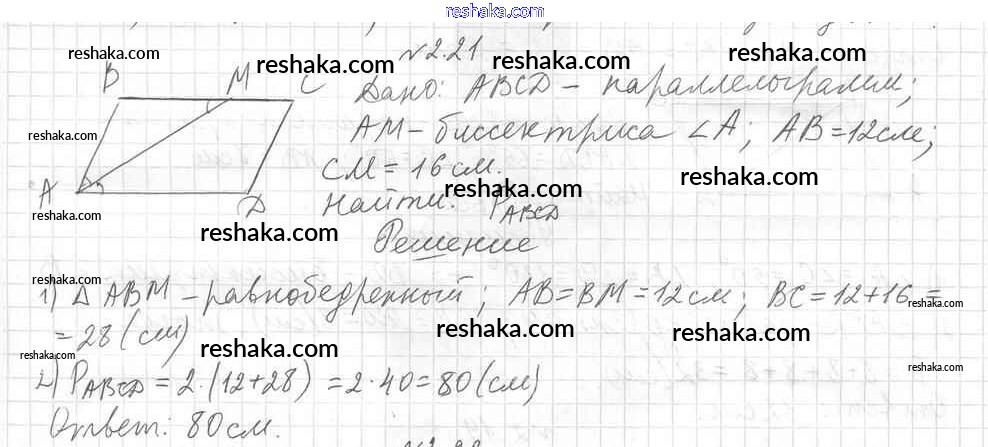 reshaka.com
№2.21
reshaka.com reshaka.com reshaka.com reshaka.com
B M C Дано: ABCD – параллелограмм;
reshaka.com
AM – биссектриса ∠A; AB = 12 см;
CM = 16 см.
reshaka.com reshaka.com
A D Найти: P ABCD
reshaka.com reshaka.com reshaka.com
Решение
reshaka.com
1) Δ ABM – равнобедренный; AB = BM = 12 см; BC = 12 + 16 =
reshaka.com
= 28 (см)
reshaka.com reshaka.com reshaka.com reshaka.com
2) P ABCD = 2·(12+28) = 2·40 = 80 (см)
reshaka.com reshaka.com
Ответ: 80 см.